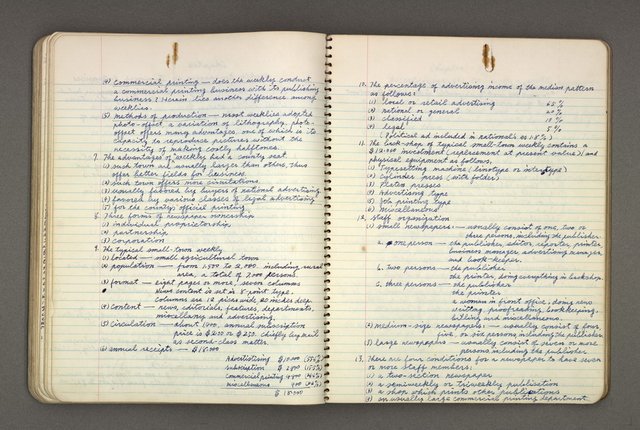 (4) Commercial printing — does the weekly conduct
a commercial printing business with its publishing
business? Herein lies another difference among
weeklies.
(5) methods of production — most weeklies adopted
photo-offset a variation of lithography, photo-
offset offers many advantages, one of which is its
capacity to reproduce pictures without the
necessity of making costly halftones.
7. The advantages of weekly had a county seat.
(1) such town are usually larger than others, thus
offer better fields for business.
(2) such town offers more circulations.
(3) usually favored by buyers of national advertising
(4) favored by various classes of legal advertising
(5) for the county's official printing.
8. Three forms of newspaper ownership
(1) individual proprietorship
(2) partnership
(3) corporation
9. The typical small-town weekly
(1) located — small agricultural town
(2) population — from 1,500 to 2,000. including rural
area, a total of 7,000 persons.
(3) format — eight pages or more, seven columns
columns are 12 picas wide 20 inches deep.
(4) content — news, editorials, features, departments,
miscellany and advertising.
(5) circulation — about 1400, annual subscription
price is $2.00 or $2.50, chiefly by mail
as second-class matter.
(6) annual receipts — $18,000
Advertising $10,000
subscription
commercial printing
miscellaneous
$ 18,000
10. The percentage of advertising income of the median pattern
as follows:
(1) local or retail advertising 65%
(2) national or general 20%
(3) classified 10%
(4) legal 5%
(Political ad included in national is 1.5%)
11. The back-shop of typical small-town weekly contains a
investment (replacement at present value) and
physical equipment as follows,
(1) Typesetting machine (linotype or intertype)
(2) Cylinder press (with folder)
(3) Platen presses
(4) Advertising type
(5) Job printing type
(6) Miscellaneous
12. Staff organization
(1) Small newspapers — usually consist of one, two or
three persons, including the publisher.
a. one person — the publisher, editor, reporter, printer,
business manager, advertising manager,
and book-keeper.
b. two persons — the publisher
the printer, doing everything in backshop.
c. three persons — the publisher
the printer
a women in front office, doing news
writting, proofreading, bookkeeping,
billing and miscellaneous.
(2) medium-size newspapers — usually consist of four
five, or six persons including the publisher
(3) large newspapers — usually consist of seven or more
persons including the publisher.
13. There are four conditions for a newspaper to have seven
or more staff members:
(1) a two-section newspaper
(2) a semiweekly or triweekly publication
(3) a shop which prints other publications
(4) an usually large commercial printing department.